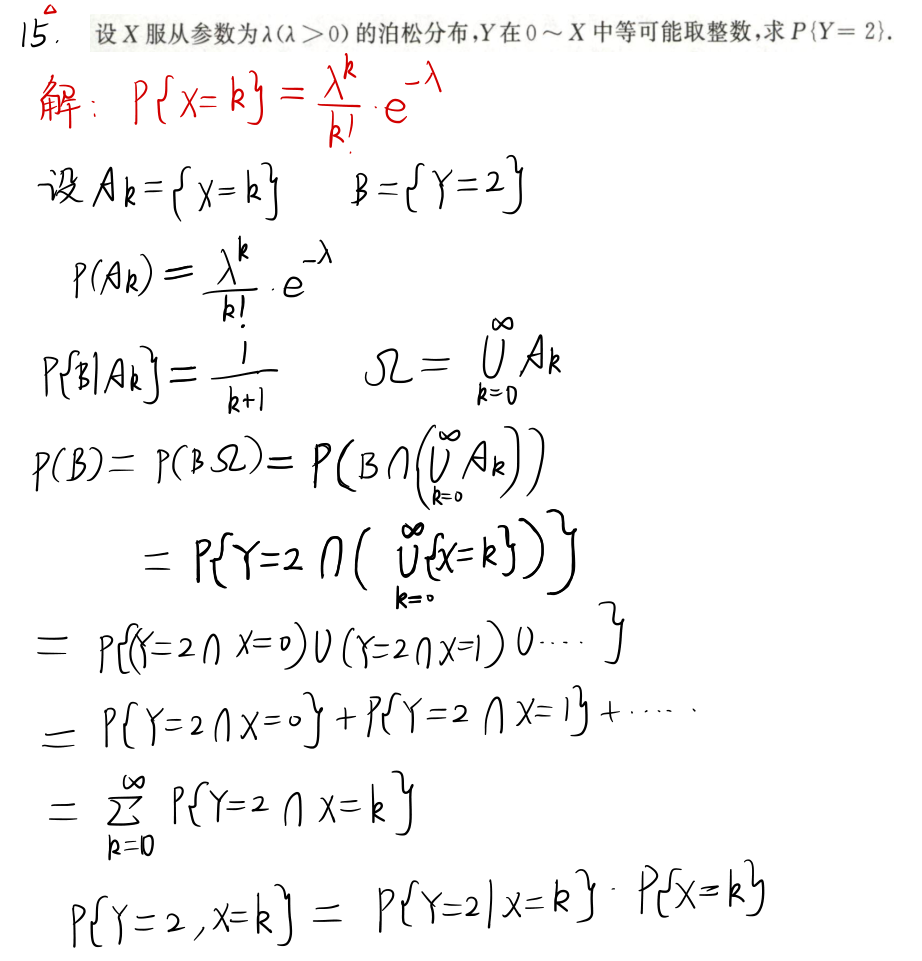 15. 设 X 服从参数为 λ(λ>0) 的泊松分布,Y 在 0～X 中等可能取整数,求 P{Y=2}.
解: P{X=k} = λ^k/k! · e^{-λ}
设 A_k={X=k} B={Y=2}
P(A_k) = λ^k/k! · e^{-λ}
P{B|A_k} = 1/(k+1) Ω = ⋃_{k=0}^{∞} A_k
P(B) = P(BΩ) = P(B∩(⋃_{k=0}^{∞} A_k))
= P{Y=2 ∩ ( ⋃_{k=0}^{∞}{X=k})}
= P{(Y=2∩X=0)∪(Y=2∩X=1)∪····}
= P{Y=2∩X=0}+P{Y=2∩X=1}+······
= ∑_{k=0}^{∞} P{Y=2∩X=k}
P{Y=2,X=k} = P{Y=2|X=k}·P{X=k}